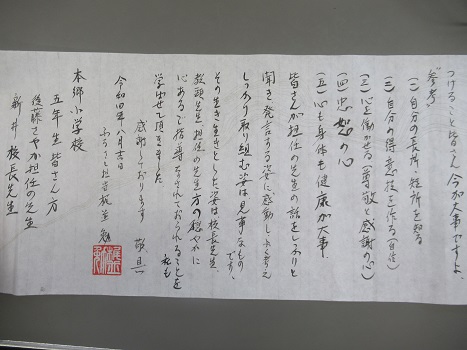 つけること皆さん今が大事ですよ、
参考
(一)自分の長所・短所を知る
(二)自分の得意技を作る(自信)
(三)心を働かせる(尊敬と感謝の心)
(四)忠恕の心
(五)心も身体も健康が大事
皆さんが担任の先生の話をしっかりと
聞き発言する姿に感動しより考え
しっかり取り組む姿は見事なもの
です。
その生き生きとした姿は校長先生
教頭先生担任の先生方の穏やかに
心あるご指導なされておられることを
私も
学ばせて頂きました
感謝しております 敬具
令和四年八月吉日
本郷小学校
五年生皆さん方
後藤さやか担任の先生
新井校長先生